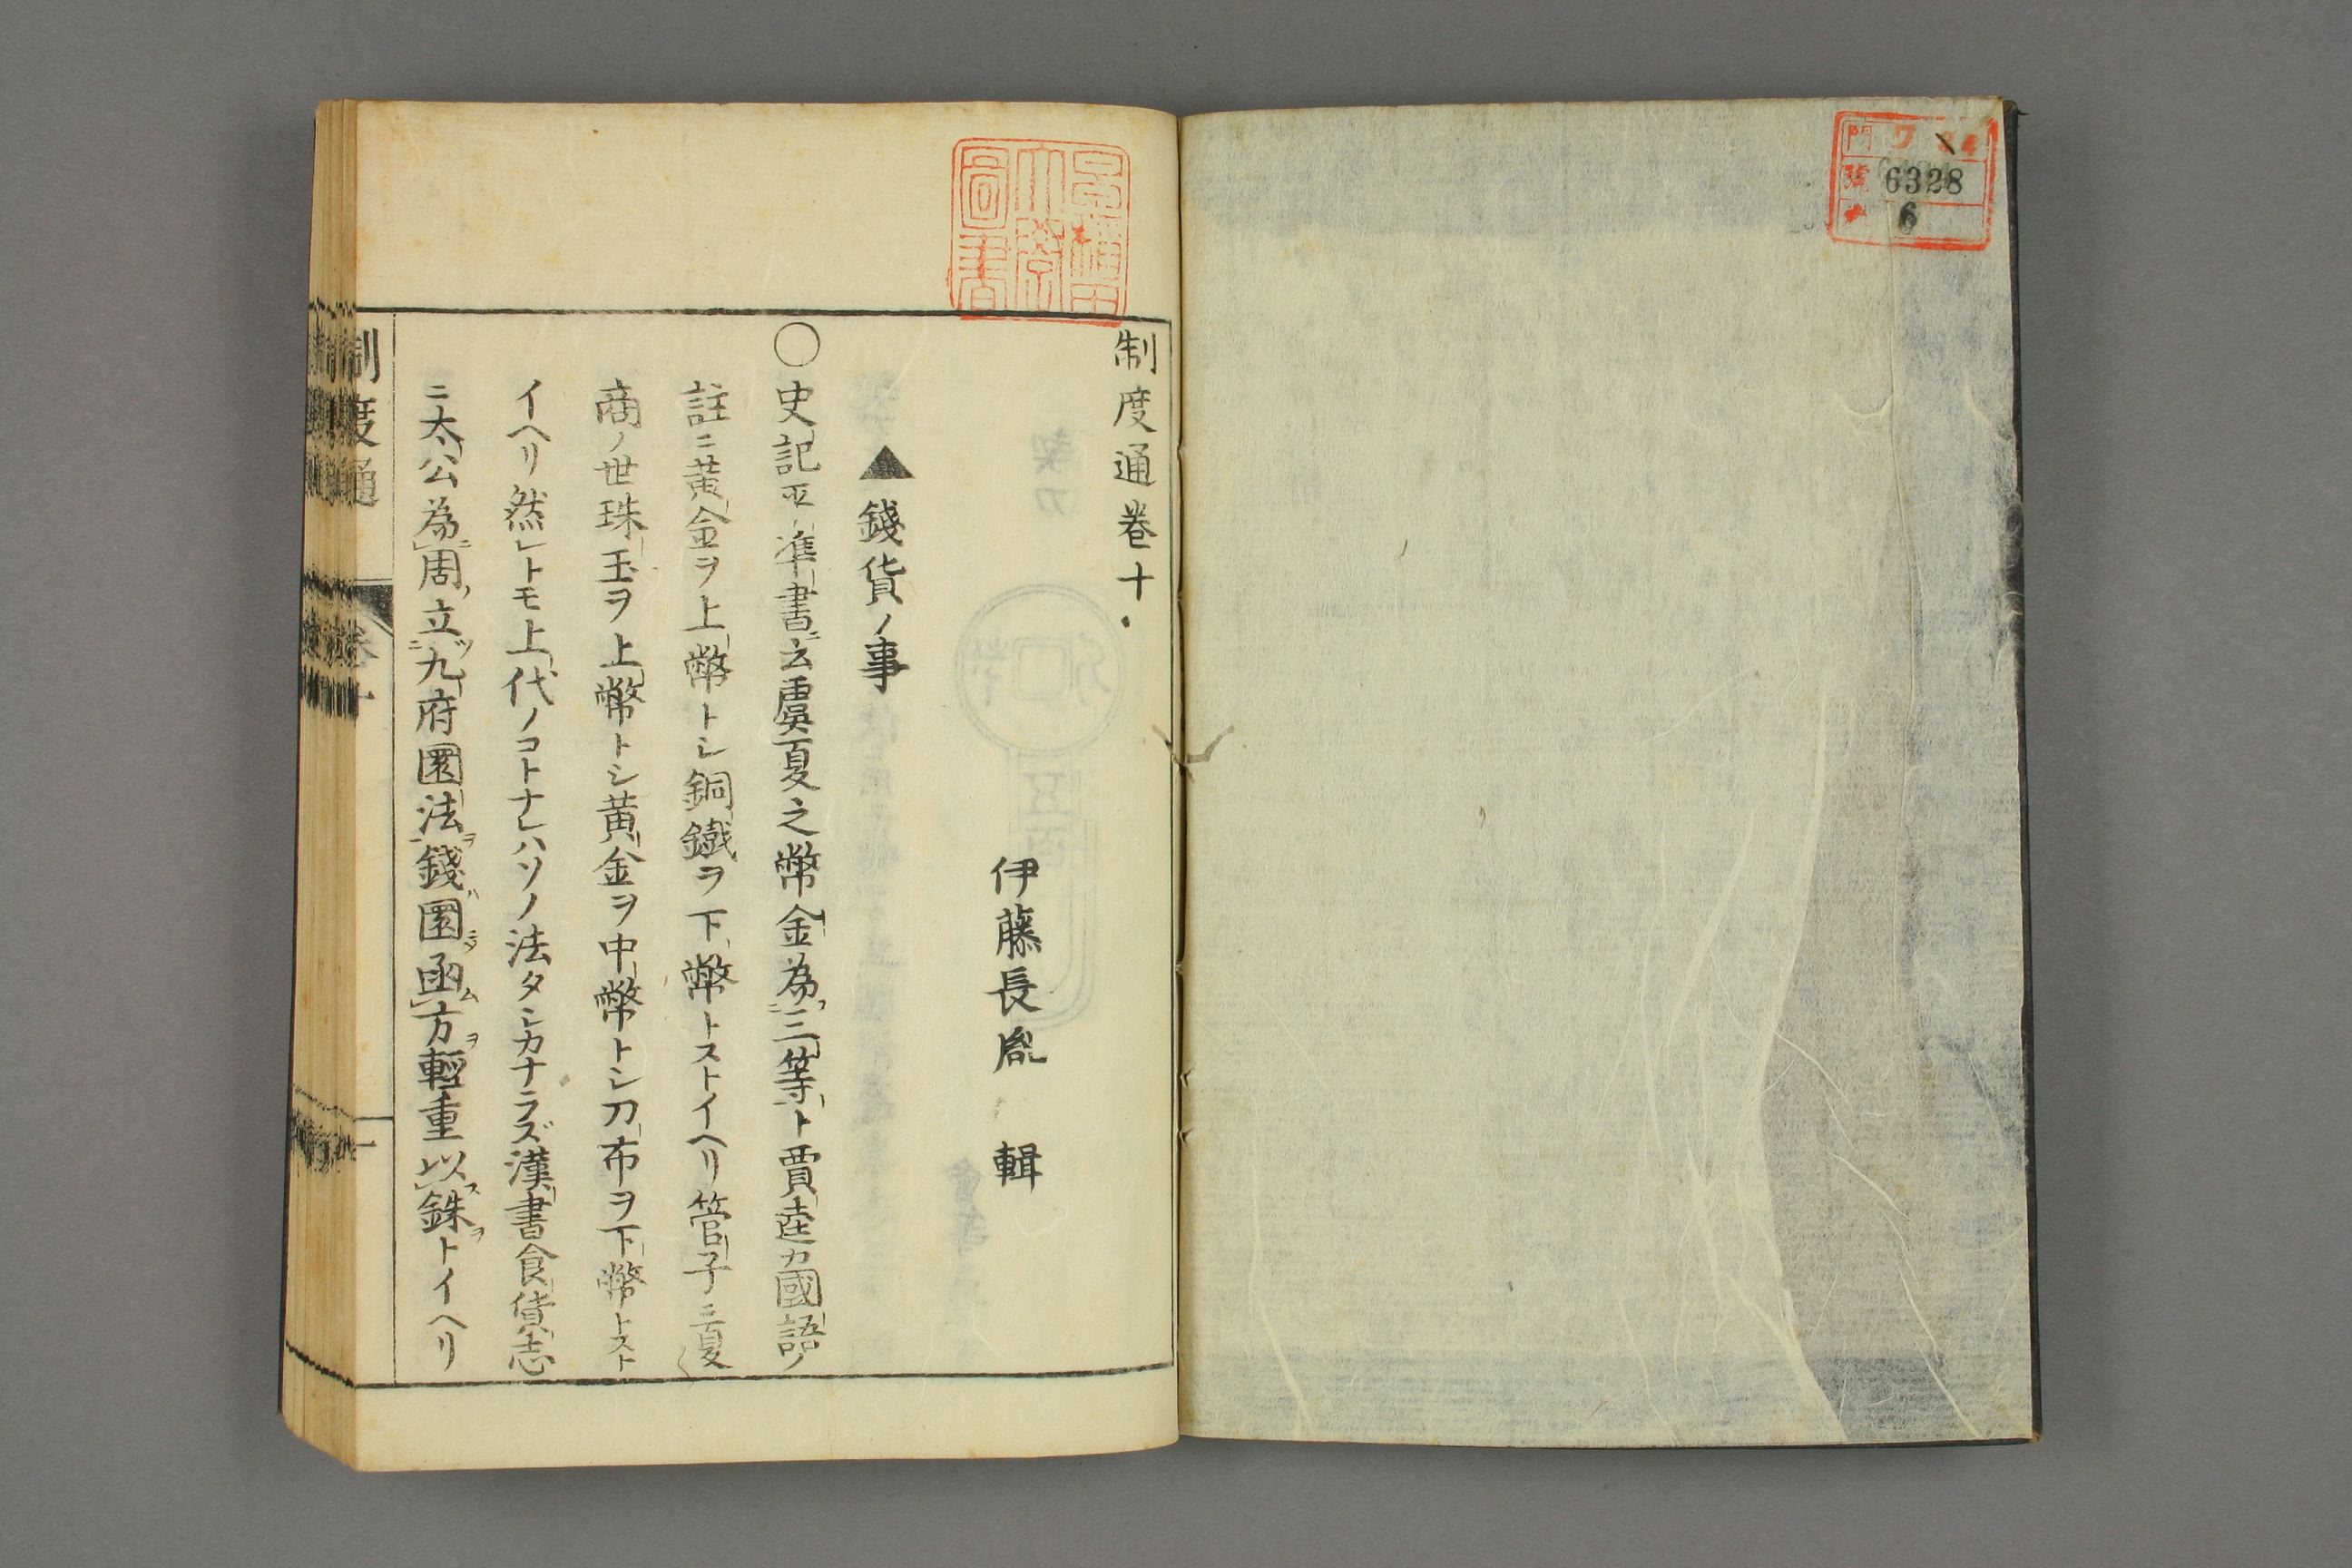 門 7
號 6328
6
制度通卷十
伊藤長胤 輯
▲錢貨ノ事
〇史記平準書ニ云虞夏之幣金為三等ト賈逵カ國語ノ
註ニ黃金ヲ上幣トシ銅鐵ヲ下幣トストイヘリ管子ニ夏
商ノ世珠玉ヲ上幣トシ黃金ヲ中幣トシ刀布ヲ下幣トスト
イヘリ然レトモ上代ノコトナレハソノ法タシカナラズ漢書食貨志
ニ太公為周立九府圜法錢圜函方輕重以銖トイヘリ
制度通 卷十 一
圖書